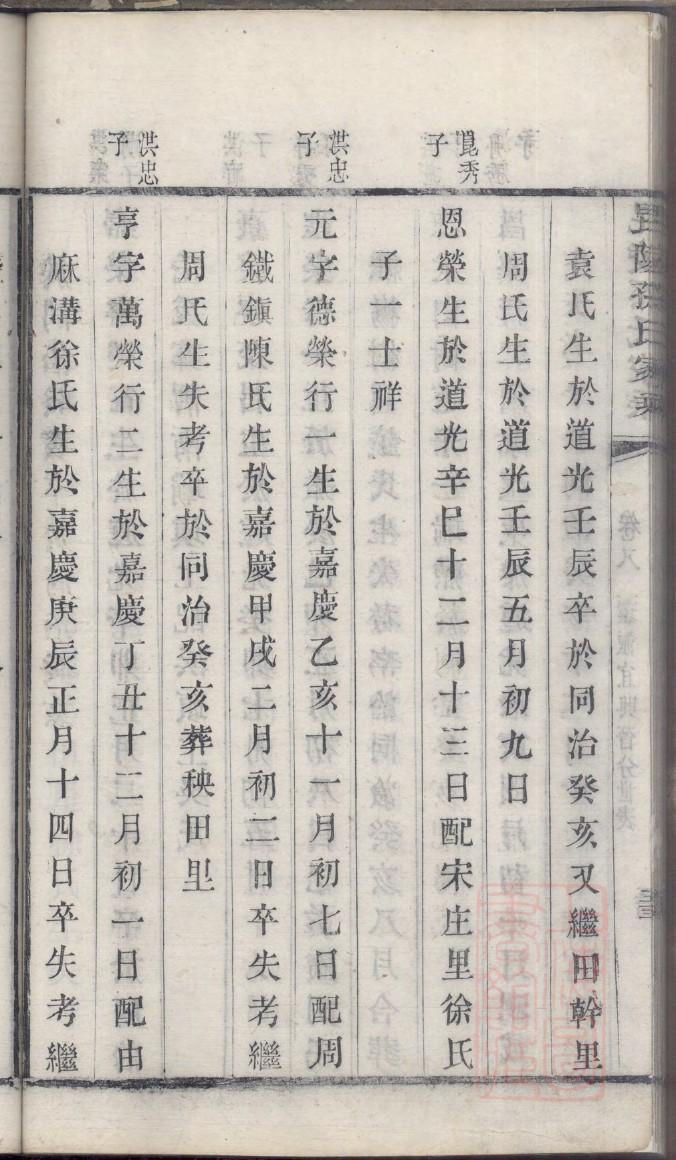 毘陵孫氏家乘
卷八
袁氏生於道光壬辰卒於同治癸亥又繼田幹里
周氏生於道光壬辰五月初九日
崑秀子
恩榮生於道光辛巳十二月十三日配宋庄里徐氏
子一士祥
洪忠子
元字德榮行一生於嘉慶乙亥十一月初七日配周
鐵鎮陳氏生於嘉慶甲戌二月初二日卒失考繼
周氏生失考卒於同治癸亥葬秧田里
洪忠子
亨字萬榮行二生於嘉慶丁丑十二月初一日配由
麻溝徐氏生於嘉慶庚辰正月十四日卒失考繼